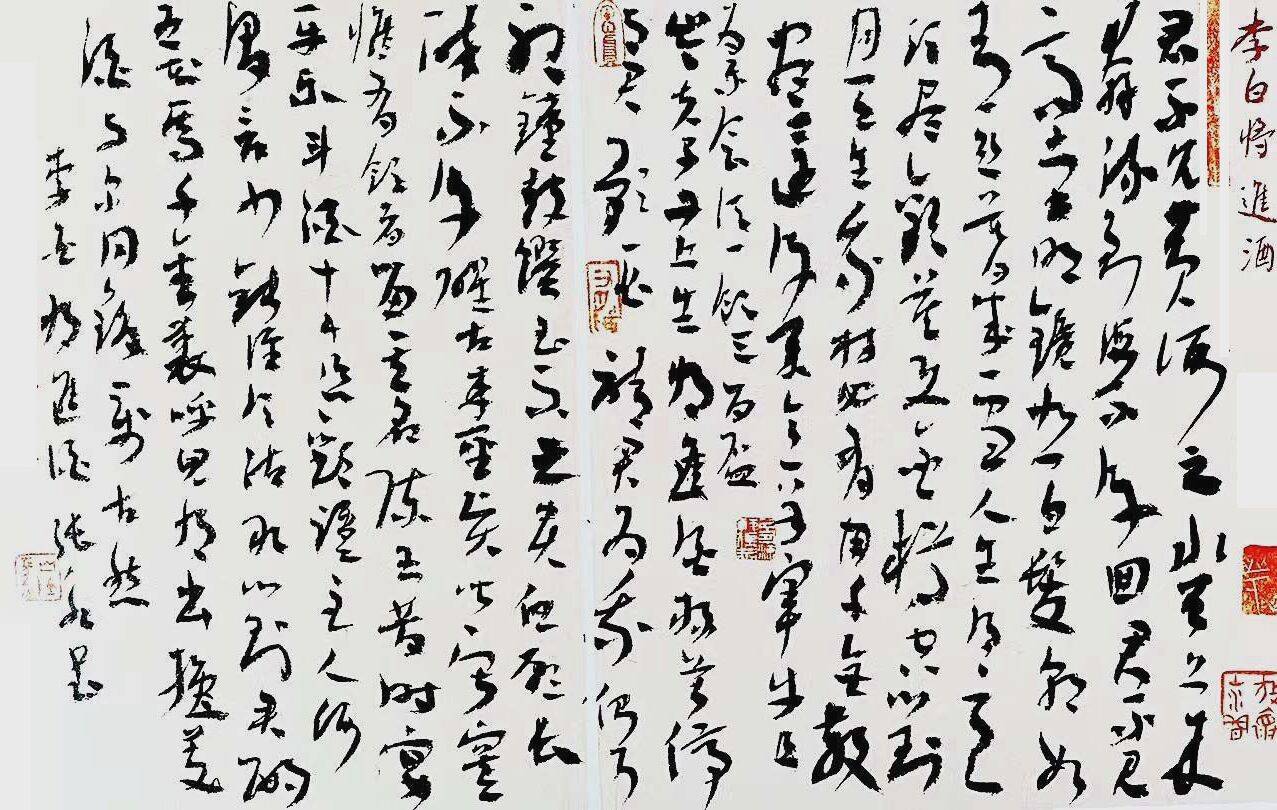 李白將進酒
君不見黃河之水天上來
奔流到海不復回君不見
高堂明鏡悲白髮朝如
青絲暮成雪人生得意
須盡歡莫使金樽空對
月天生我材必有用千金散
盡還復來烹羊宰牛且
為樂會須一飲三百盃
岑夫子丹丘生將進酒杯莫停
與君歌一曲請君為我側耳
聽鐘鼓饌玉不足貴但願長
醉不復醒古來聖賢皆寂寞
惟有飲者留其名陳王昔時宴
平樂斗酒十千恣歡謔主人何
為言少錢徑須沽取對君酌
五花馬千金裘呼兒將出換美
酒與爾同銷萬古愁
李白將進酒 張永